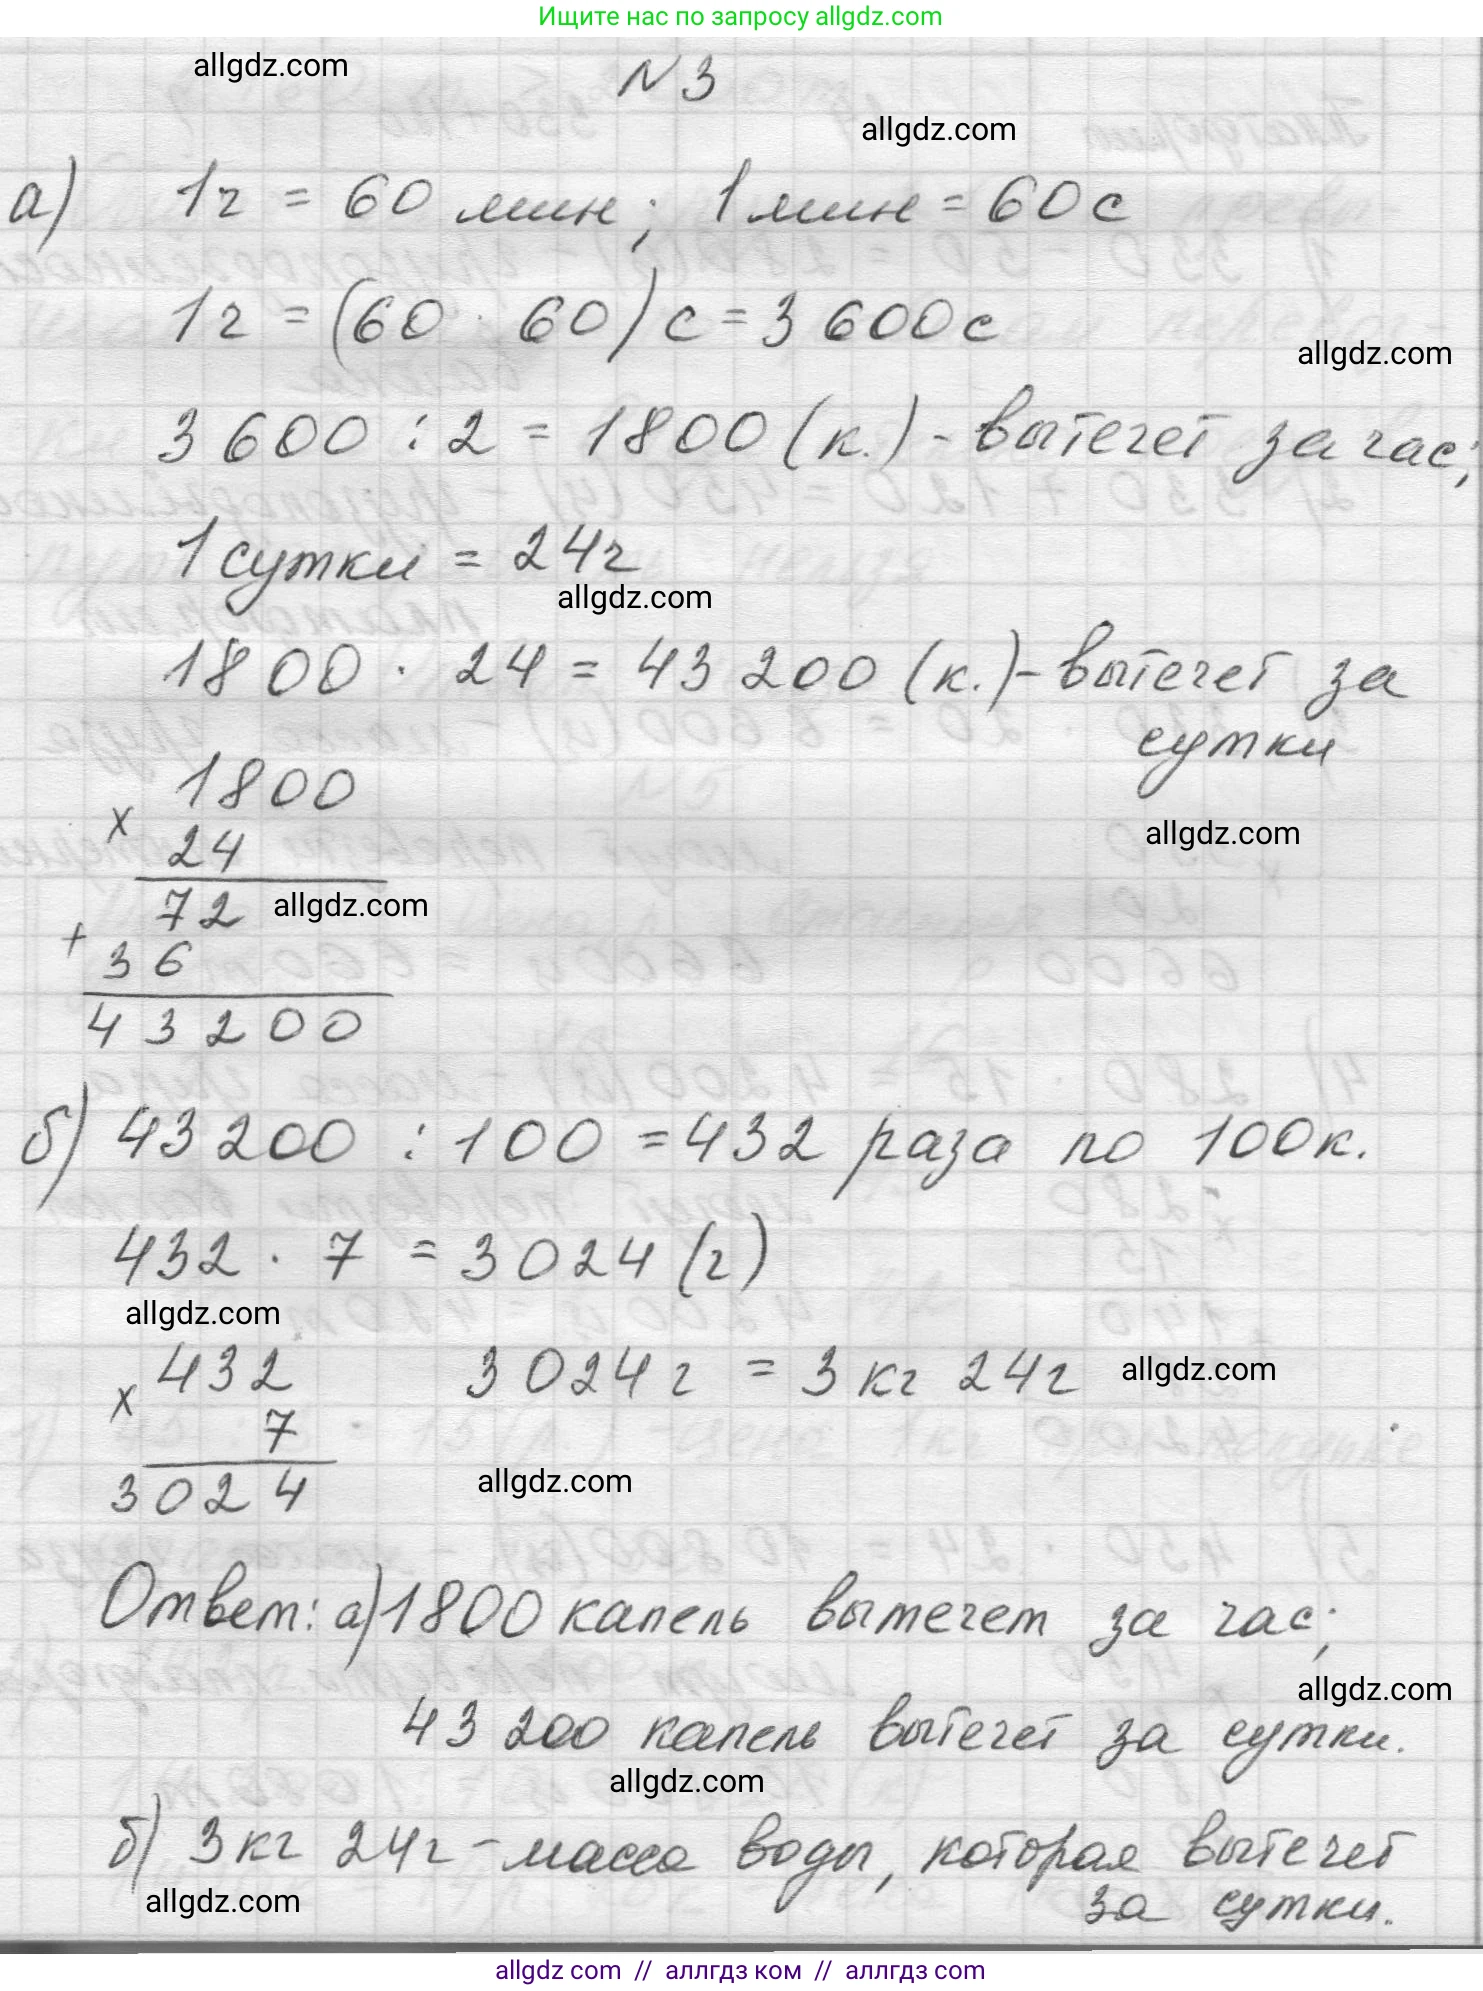 Ищите нас по запросу allgdz.com
allgdz.com
N 3
allgdz.com
а) 1ч = 60 мин; 1 мин = 60 с
1ч = (60 · 60) с = 3 600 с
allgdz.com
3 600 : 2 = 1800 (к.) - вытечет за час;
1 сутки = 24ч
allgdz.com
1800 · 24 = 43 200 (к.) - вытечет за
сутки
1800
allgdz.com
х 24
72
allgdz.com
+ 36
43200
б) 43 200 : 100 = 432 раза по 100к.
432 · 7 = 3 024 (г)
allgdz.com
х 432 3 024 г = 3 кг 24 г
allgdz.com
7
3024
allgdz.com
Ответ: а) 1800 капель вытечет за час;
allgdz.com
43 200 капель вытечет за сутки.
allgdz.com
б) 3 кг 24 г - масса воды, которая вытечет
allgdz.com
за сутки.
allgdz com // аллгдз ком // аллгдз com